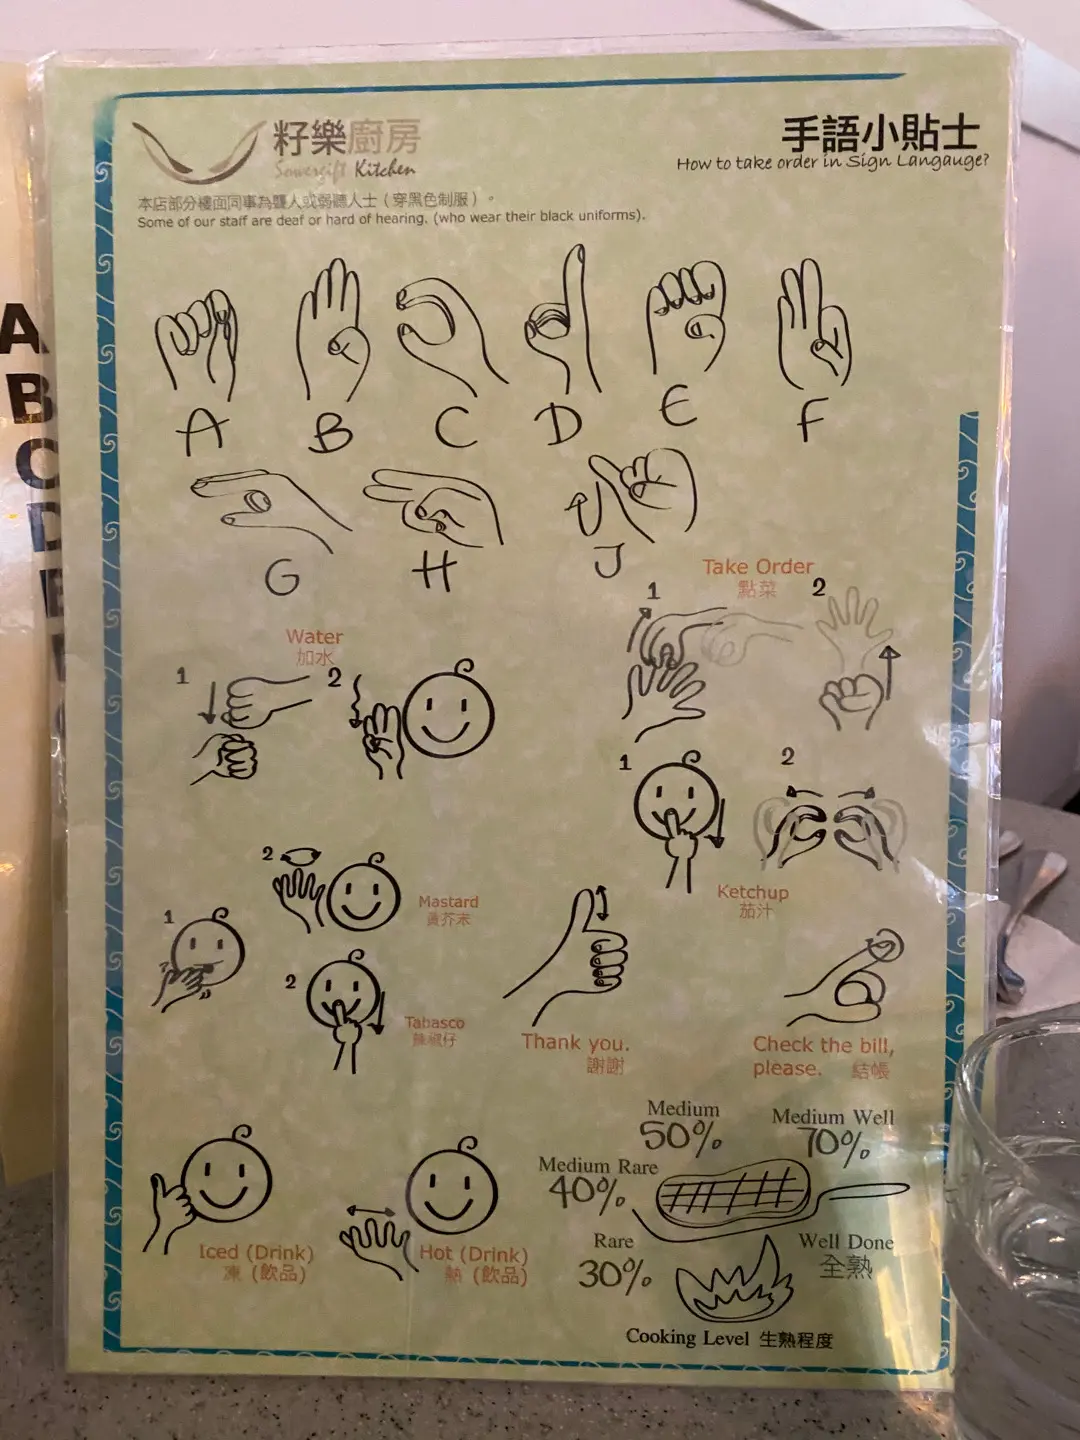 籽樂廚房
Sowergift Kitchen
手語小貼士
How to take order in Sign Langauge?
本店部分樓面同事為聾人或弱聽人士（穿黑色制服）。
Some of our staff are deaf or hard of hearing. (who wear their black uniforms).
A
B
C
D
A B C D E F
G H J
Take Order
點菜
1 2
Water
加水
1 2
1 2
Ketchup
茄汁
1
2
Mastard
黃芥末
2
Tabasco
辣椒仔
Thank you.
謝謝
Check the bill,
please. 結帳
Iced (Drink)
凍 (飲品)
Hot (Drink)
熱 (飲品)
Medium
50%
Medium Well
70%
Medium Rare
40%
Rare
30%
Well Done
全熟
Cooking Level 生熟程度